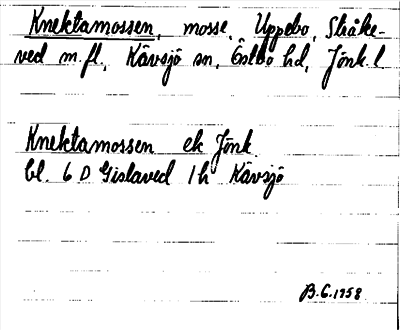 Knektamossen, mosse, Uppebo, Stråke-
ved m.fl., Kävsjö sn, Östbo hd, Jönk. l
Knektamossen ek Jönk.
bl. 6 D Gislaved 1h Kävsjö
B.G. 1958